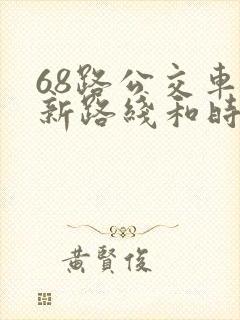 68路公交車
新路綫和時
黃賢俊